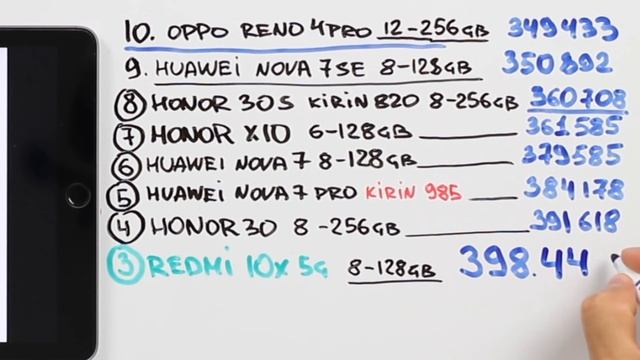 10. OPPO RENO 4PRO 12-256GB 349433
9. HUAWEI NOVA 7SE 8-128GB 350892
8 HONOR 30S KIRIN 820 8-256GB 360708
7 HONOR X10 6-128GB 361585
6 HUAWEI NOVA 7 8-128GB 379585
5 HUAWEI NOVA 7 PRO KIRIN 985 384178
4 HONOR 30 8-256GB 391618
3 REDMI 10X 5G 8-128GB 398.44